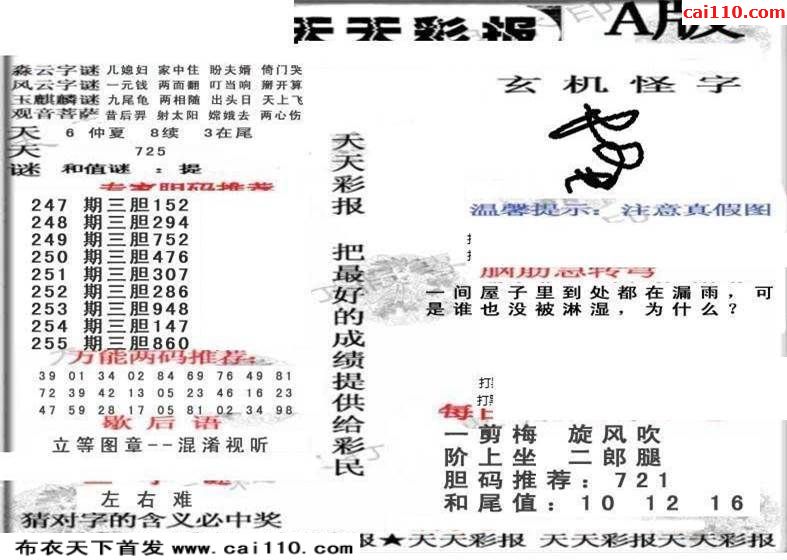 cai110.com
天天彩报 A版
淼云字谜 儿媳妇 家中住 盼夫婿 倚门哭
风云字谜 一元钱 两面翻 叮当响 掰开算
玉麒麟谜 九尾龟 两相随 出头日 天上飞
观音菩萨 昔后羿 射太阳 嫦娥去 两心伤
天 6 仲夏 8续 3在尾
天 725
谜 和值谜 : 提
专家胆码推荐
247 期三胆152
248 期三胆294
249 期三胆752
250 期三胆476
251 期三胆307
252 期三胆286
253 期三胆948
254 期三胆147
255 期三胆860
万能两码推荐:
39 01 34 02 84 69 76 49 81
72 39 42 13 05 23 46 16 23
47 59 28 17 05 81 02 34 98
歇后语
立等图章--混淆视听
左右难
猜对字的含义必中奖
天天彩报 把最好的成绩提供给彩民
玄机怪字
温馨提示: 注意真假图
脑筋急转弯
一间屋子里到处都在漏雨，可
是谁也没被淋湿，为什么？
每
一剪梅 旋风吹
阶上坐 二郎腿
胆码推荐: 721
和尾值: 10 12 16
布衣天下首发 www.cai110.com 报★天天彩报 天天彩报 天天彩报